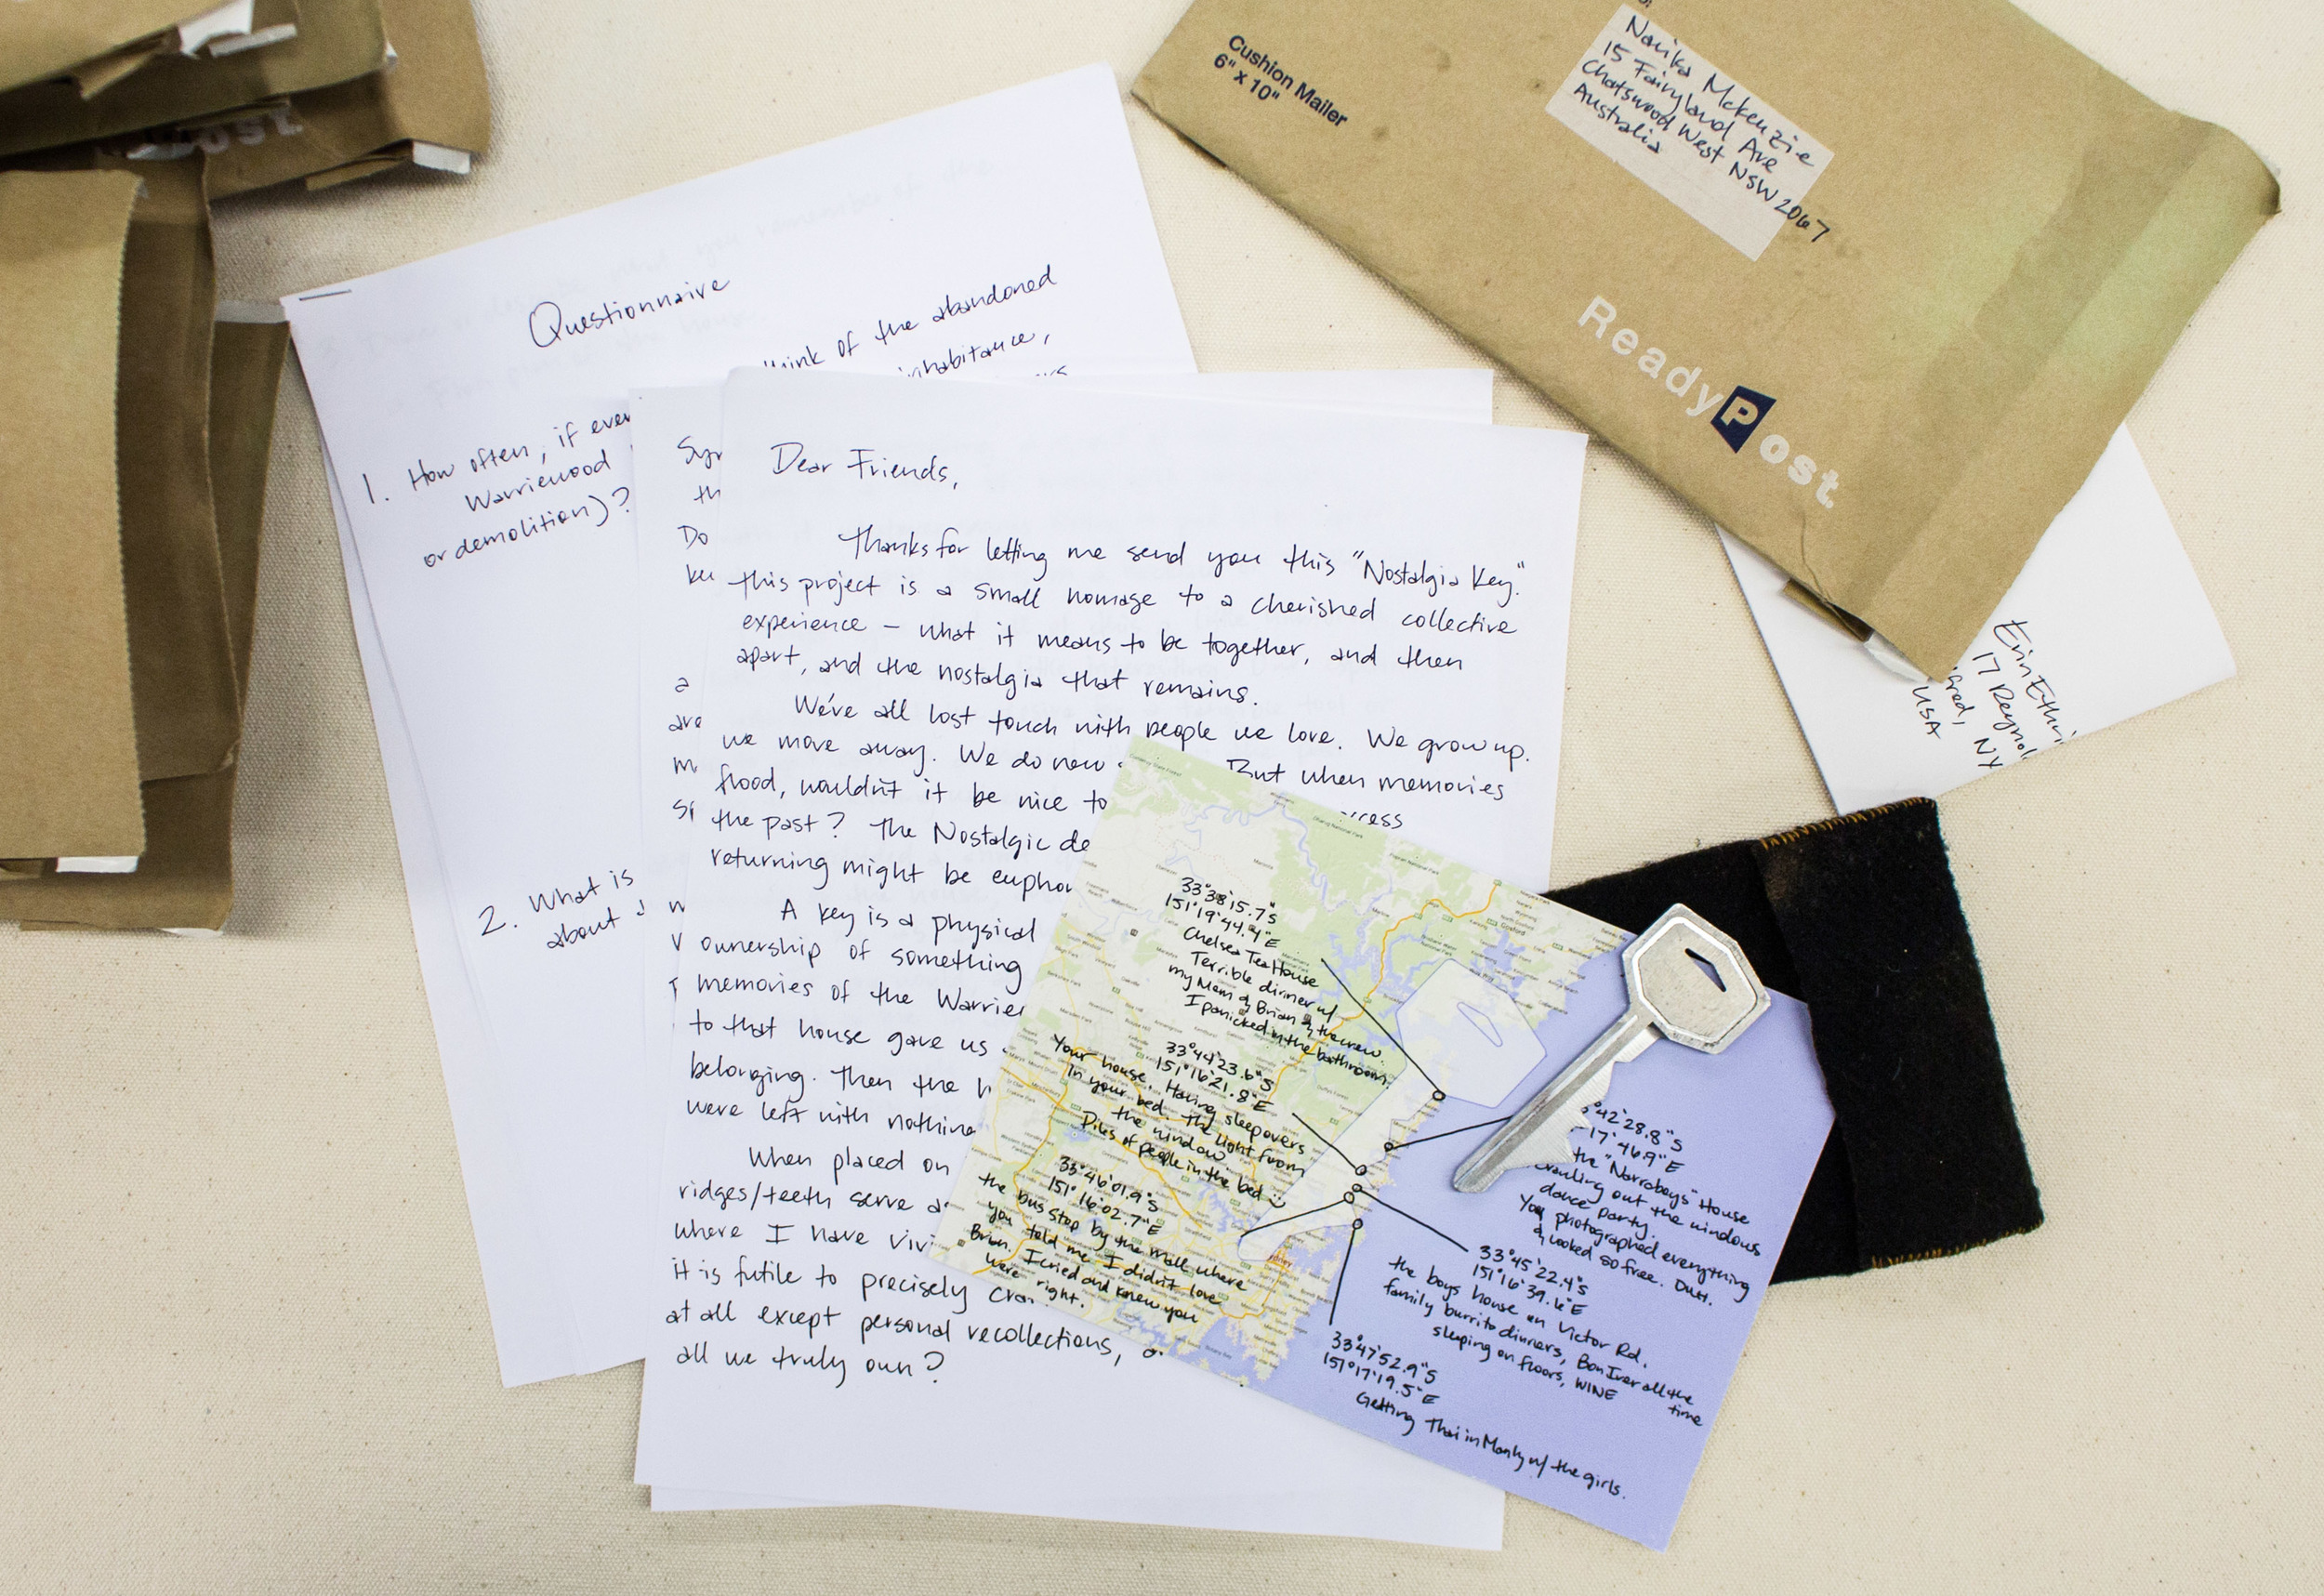 Cushion Mailer
6" x 10"
Narika McKenzie
15 Fairyland Ave
Chatswood West NSW 2067
Australia
ReadyPost
Post
Erin
17
NY
USA
Questionnaire
1. How often, if ever
think of the abandoned
Warriewood
inhabitance,
or demolition)?
2. What is
about
th
Do
a
are
Dear Friends,
Thanks for letting me send you this "Nostalgia Key."
This project is a small homage to a cherished collective
experience – what it means to be together, and then
apart, and the nostalgia that remains.
We've all lost touch with people we love. We grow up.
we move away. We do new But when memories
flood, wouldn't it be nice to
the past? The Nostalgic de
returning might be eupho
A key is a physical
ownership of something
memories of the Warrie
to that house gave us
belonging. Then the h
were left with nothing
When placed on
ridges/teeth serve a
where I have vivi
it is futile to precisely
at all except personal recollections,
all we truly own?
33°38'15.7"S
151°19'44.4"E
Chelsea Tea House
Terrible dinner w/
my Mom & Brian & the crew.
I panicked in the bathroom.
33°44'23.6"S
151°16'21.8"E
Your house. Having sleepovers
in your bed. The light from
the window.
Piles of people in the bed
33°46'01.9"S
151°16'02.7"E
the bus stop by the mall where
you told me I didn't love
Brian. I cried and knew you
were right.
°42'28.8"S
17'46.9"E
the "Narraboys" House
crawling out the windows
dance party.
You photographed everything
& looked so free.
33°45'22.4"S
151°16'39.6"E
the boys house on Victor Rd.
family burrito dinners, Bon Iver all the
time
sleeping on floors, WINE
33°47'52.9"S
151°17'19.5"E
Getting Thai in Manly w/ the girls.